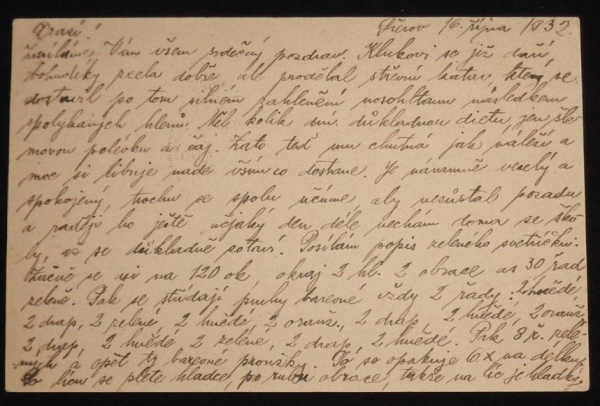 Drazí! Přerov 16. října 1932.
Vám všem srdečný pozdrav. Klukovi se již daří
zcela dobře, ale prodělal střevní katar, který se
dostavil po tom silném zahlenění nosohltanu následkem
spolykaných hlenů. Měl kolik dní důkladnou dietu, jen šle-
movou polévku a čaj. Zato teď mu chutná jak náleží a
moc si libuje nade vším co dostane. Je náramně veselý a
spokojený, trochu se spolu učíme aby nezůstal pozadu
a raději ho ještě nějaký den déle nechám doma ze ško-
ly, až se důkladně zotaví. Posílám popis zeleného svetříčku:
se asi na 120 ok, okraj 2 hl. 2 obrace as 30 řad
zeleně. Pak se střídají pruhy barevné vždy 2 řady: 2 hnědé,
2 drap, 2 zelené, 2 hnědé, 2 oranž., 2 drap, 2 hnědé, 2 oranž
2 drap, 2 hnědé, 2 zelené, 2 drap, 2 hnědé. Pak 8 ř. zele-
ných a opět ty barevné proužky. To se opakuje 6x na délku,
po líci se plete hladce, po rubu obrace, takže na líc je hladký,